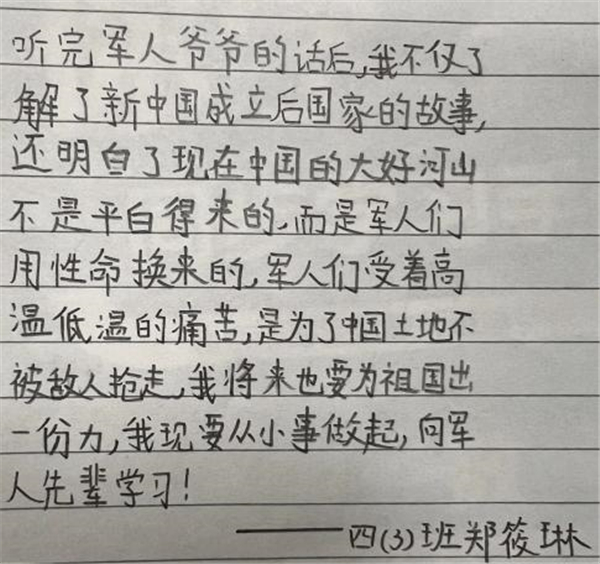 听完军人爷爷的话后,我不仅了
解了新中国成立后国家的故事,
还明白了现在中国的大好河山
不是平白得来的,而是军人们
用性命换来的,军人们受着高
温低温的痛苦,是为了中国土地不
被敌人抢走,我将来也要为祖国出
一份力,我现要从小事做起,向军
人先辈学习!
——四(3)班郑筱琳